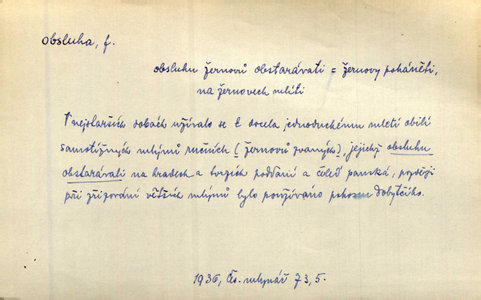 obsluha, f.
obsluhu žernovů obstarávati = žernovy poháněti,
na žernovech mlíti
V nejstarších dobách užívalo se k docela jednoduchému mletí obilí
samotížných mlýnů ručních (žernovů zvaných), jejichž obsluhu
obstarávali na hradech a tvrzích poddaní a čeleď panská, později
při zřizování větších mlýnů bylo používáno pohonu dobytčího.
1936, Čs. mlynář 73, 5.